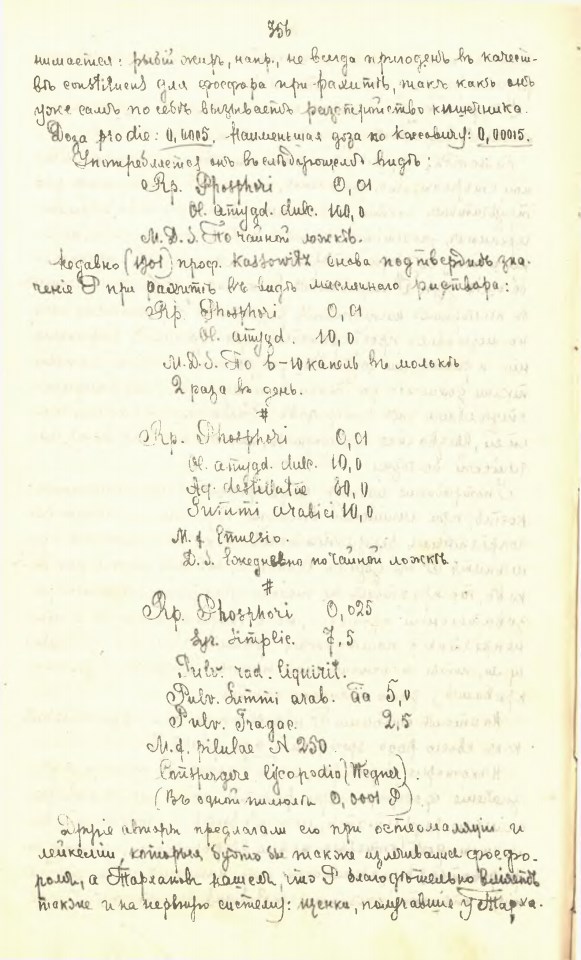 356
нимается: рыбій жиръ, напр., не всегда пригоденъ въ качест-
вѣ constituens для фосфора при рахитѣ, такъ какъ онъ
уже самъ по себѣ вызываетъ разстройство кишечника.
Доза pro die: 0,0005. Наименьшая доза по Кассовицу: 0,00015.
Употребляется онъ въ слѣдующемъ видѣ:
Rp. Phosphori 0,01
Ol. amygd. dulc. 100,0
M.D.S. По чайной ложкѣ.
Недавно (1901) проф. Kassowitz снова подтвердилъ зна-
ченіе P при рахитѣ въ видѣ маслянаго раствора:
Rp. Phosphori 0,01
Ol. amygd. 10,0
M.D.S. По 5-10 капель въ молокѣ
2 раза въ день.
#
Rp. Phosphori 0,01
Ol. amygd. dulc. 10,0
Aq. destillatae 80,0
Gummi arabici 10,0
M. f. Emulsio.
D.S. Ежедневно по чайной ложкѣ.
#
Rp. Phosphori 0,025
Syr. Simplic. 7,5
Pulv. rad. liquirit.
Pulv. Gummi arab. āā 5,0
Pulv. Tragac. 2,5
M. f. pilulae N 250.
Conspergere lycopodio (Wegner).
(Въ одной пилюлѣ 0,0001 P)
Другіе авторы предлагали его при остеомаляціи и
лейкеміи, которыя будто бы также излѣчивались фосфо-
ромъ, а Тархановъ нашелъ, что P благодѣтельно вліяетъ
также и на нервную систему: щенки, получавшіе у Тарха-